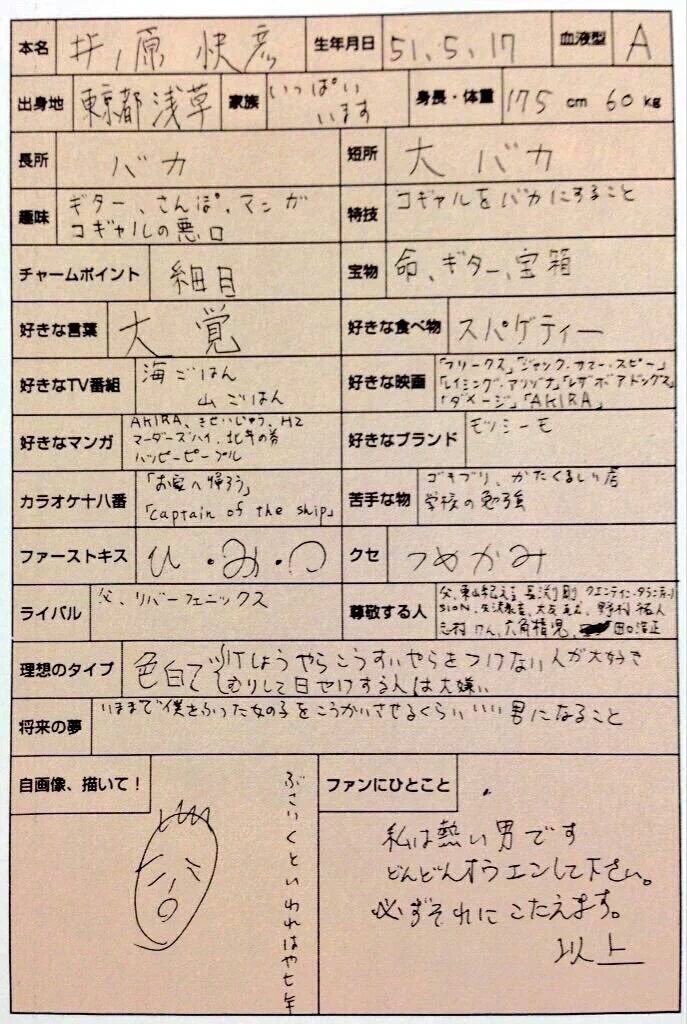 本名 井ノ原 快彦 生年月日 51.5.17 血液型 A
出身地 東京都浅草 家族 いっぱい います 身長・体重 175 cm 60 kg
長所 バカ 短所 大バカ
趣味 ギター、さんぽ、マンガ
コギャルの悪口
特技 コギャルをバカにすること
チャームポイント 細目 宝物 命、ギター、宝箱
好きな言葉 大覚 好きな食べ物 スパゲティー
好きなTV番組 海ごはん
山ごはん
好きな映画 「フリークス」「ジャンク・サマー・スピー」
「レイミング・アリゾナ」「レザボアドッグス」
「ダメージ」「AKIRA」
好きなマンガ AKIRA、きせいじゅう、H2
マーダーズハイ、北斗の拳
ハッピーピープル
好きなブランド モッシーモ
カラオケ十八番 「お家へ帰ろう」
「captain of the ship」
苦手な物 ゴキブリ、かたくるしい店
学校の勉強
ファーストキス ひ・み・つ クセ つめかみ
ライバル 父、リバーフェニックス
尊敬する人 父、東山紀之 長渕剛 クエンティン・タランティーノ
SION、矢沢永吉 大友克洋、野村祐人
志村けん、六角精児、田口浩正
理想のタイプ 色白で けしょうやらこうすいやらをつけない人が大好き
むりして日やけする人は大嫌い
将来の夢 いままで僕をふった女の子をこうかいさせるくらい いい男になること
自画像、描いて!
ぶさいくといわれはや七年
ファンにひとこと
私は熱い男です
どんどんオウエンして下さい。
必ずそれにこたえます。
以上